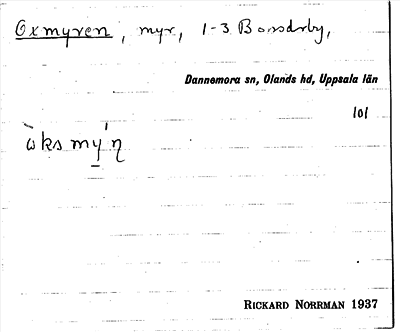 Oxmyren, myr, 1-3 Bondarby,
Dannemora sn, Olands hd, Uppsala län
101
ὼks mý̲ꞃ
RICKARD NORRMAN 1937